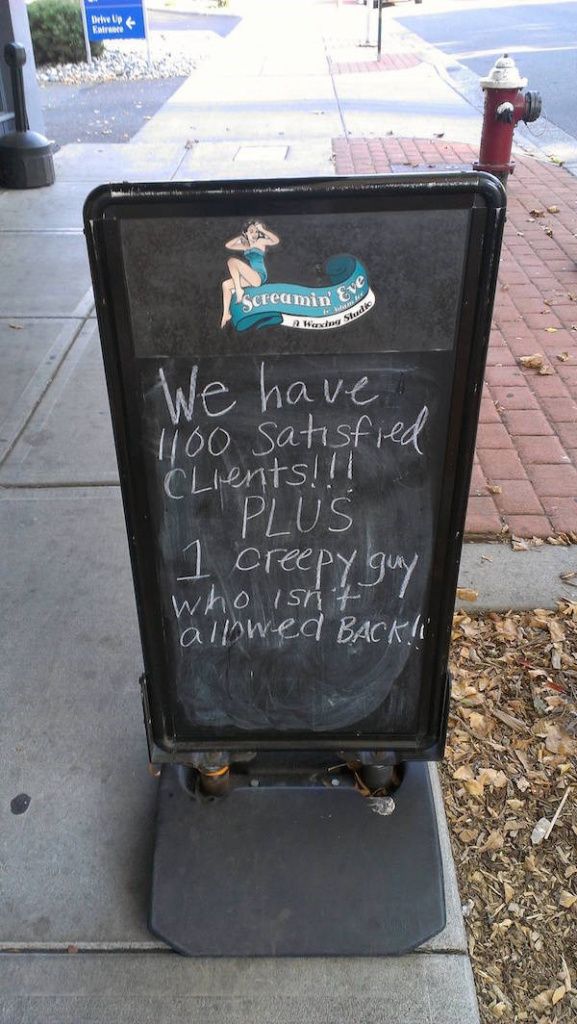 Drive Up
Entrance
Screamin' Eve
& Adam too
A Waxing Studio
We have
1100 Satisfied
CLients!!!
PLUS
1 creepy guy
who isn't
allowed BACK!!